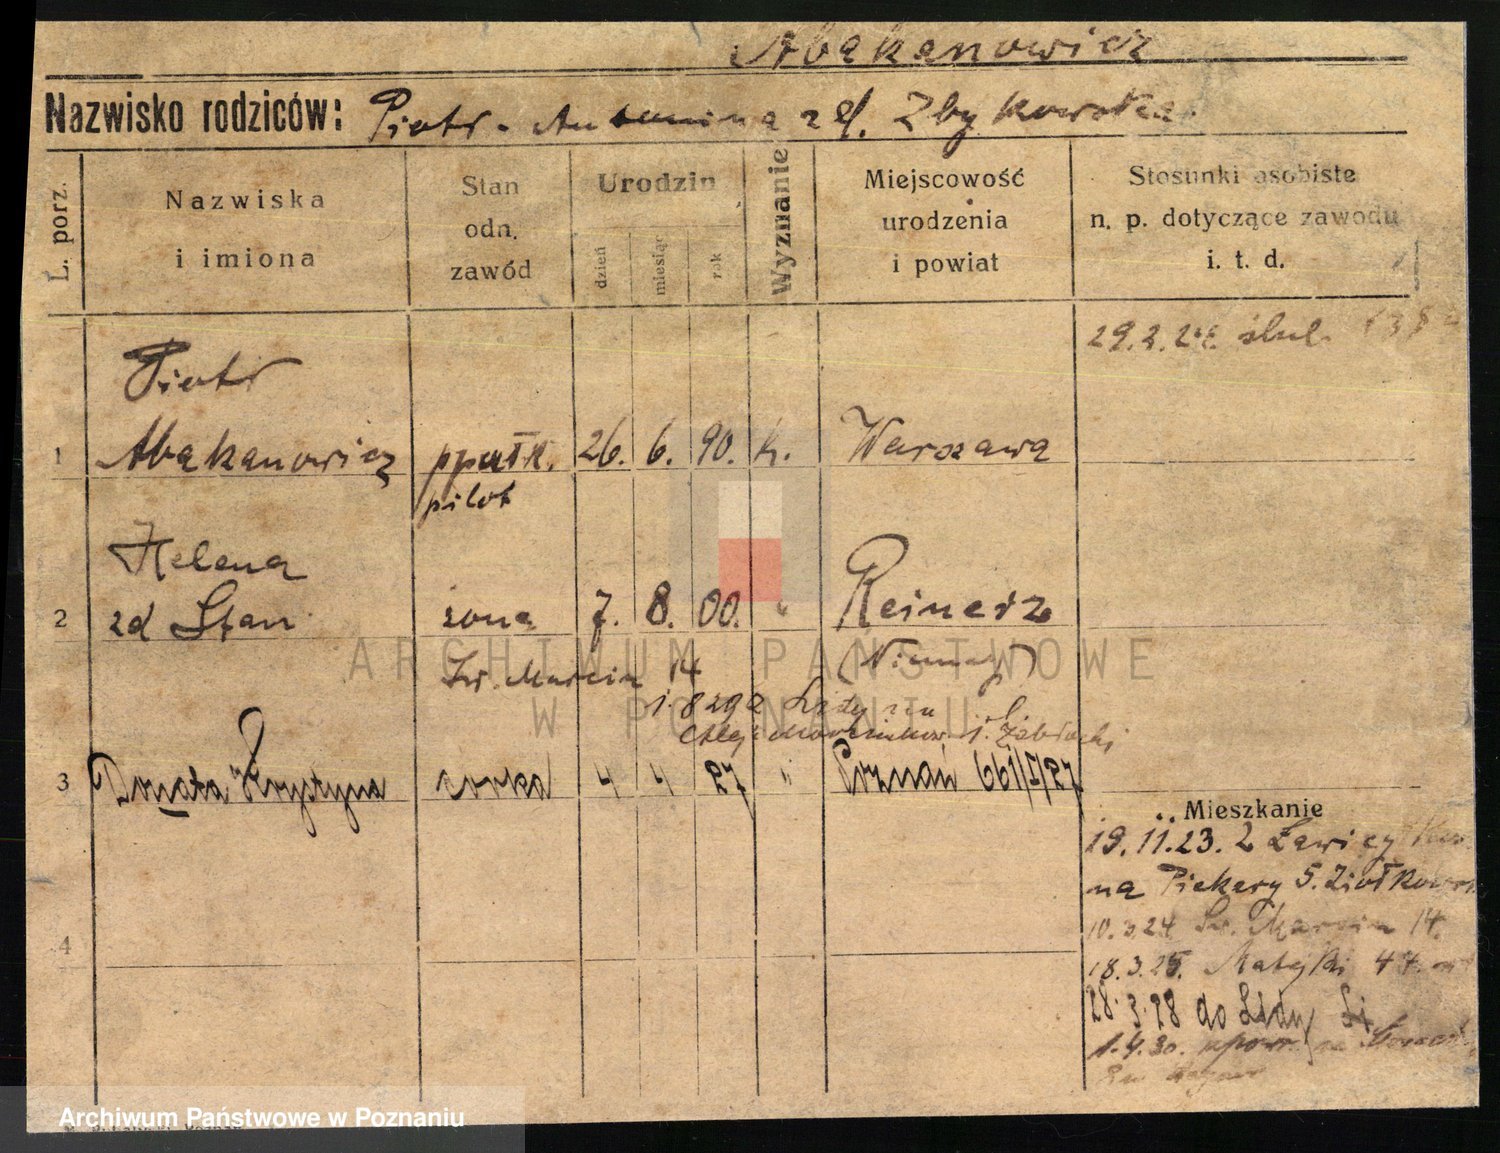 Abakanowicz
Nazwisko rodziców: Piotr - Antonina zd. Zbykowska
L. porz.
Nazwiska
i imiona
Stan
odn.
zawód
Urodzin
dzień
miesiąc
rok
Wyznanie
Miejscowość
urodzenia
i powiat
Stosunki osobiste
n. p. dotyczące zawodu
i. t. d.
29.2.24. ślub.
Piotr
1 Abakanowicz ppułk. 26. 6. 90. k. Warszawa
pilot
Helena
2 zd Stan żona 7. 8. 00. " Reinerz
(Niemcy)
Św. Marcin 14
3 Donata Krystyna corka 4 4 27 " Poznań 661/I/27
Mieszkanie
19.11.23. z Ławicy
na Piekary 5.
4
10.3.24 Św. Marcin 14.
18.3.25. Matejki 44.
28.3.28 do Lidy
1.4.30.
ARCHIWUM PAŃSTWOWE
W POZNANIU
Archiwum Państwowe w Poznaniu